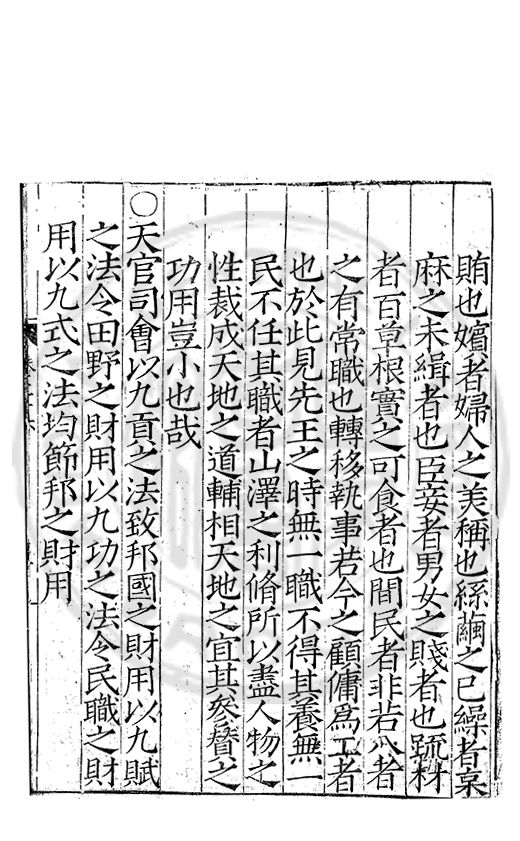 賄也嬪者婦人之美稱也絲繭之已繅者枲
麻之未緝者也臣妾者男女之賤者也疏材
者百草根實之可食者也間民者非若八者
之有常職也轉移執事若今之顧傭爲工者
也於此見先王之時無一職不得其養無一
民不任其職者山澤之利脩所以盡人物之
性裁成天地之道輔相天地之宜其參贊之
功用豈小也哉
○天官司會以九貢之法致邦國之財用以九賦
之法令田野之財用以九功之法令民職之財
用以九式之法均節邦之財用